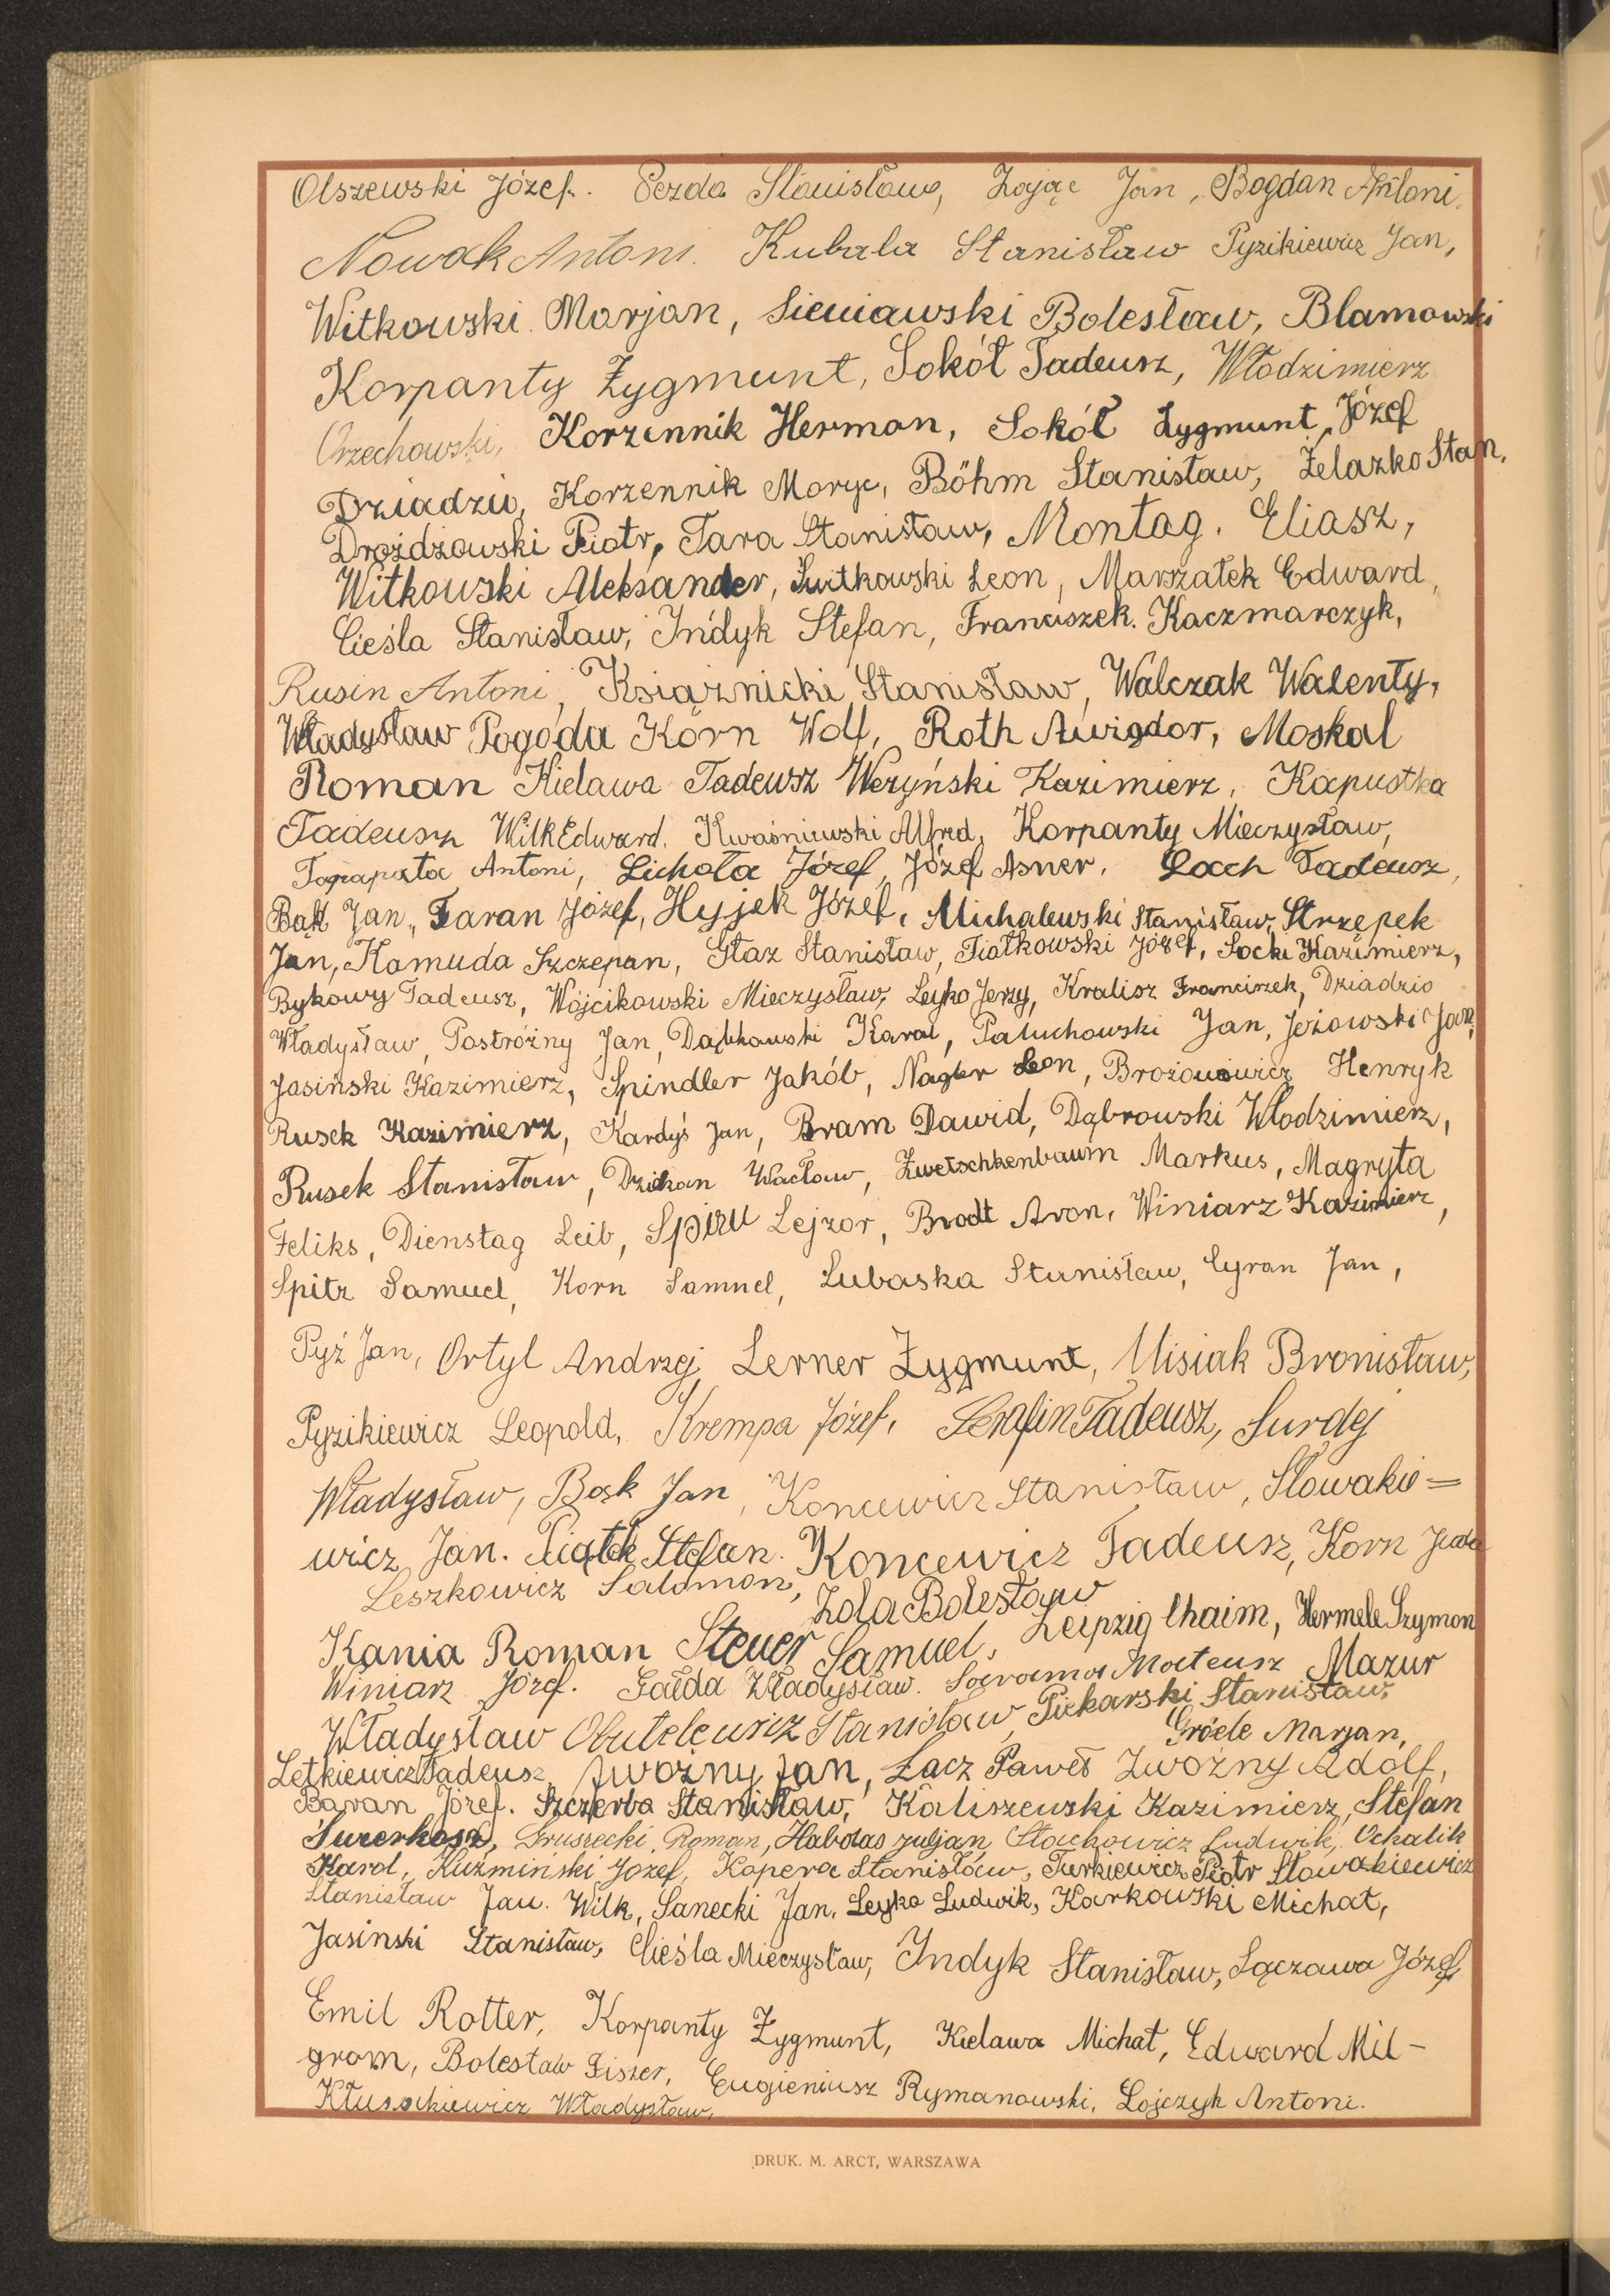 Olszewski Józef. Pezda Stanisław, Zając Jan, Bogdan Antoni.
Nowak Antoni. Kubala Stanisław Pyzikiewicz Jan,
Witkowski Marjan, Sieniawski Bolesław, Blamowski
Korpanty Zygmunt, Sokół Tadeusz, Włodzimierz
Orzechowski, Korzennik Herman, Sokół Zygmunt, Józef
Dziadzio, Korzennik Moryc, Böhm Stanisław, Żelazko Stan.
Drożdżowski Piotr, Tara Stanisław, Montag. Eliasz,
Witkowski Aleksander, Świtkowski Leon, Marszałek Edward,
Cieśla Stanisław, Indyk Stefan, Franciszek. Kaczmarczyk,
Rusin Antoni, Książnicki Stanisław, Walczak Walenty,
Władysław Pogoda Korn Wolf, Roth Awigdor, Moskal
Roman Kielawa Tadeusz Weryński Kazimierz, Kapustka
Tadeusz Wilk Edward. Kwaśniewski Alfred, Korpanty Mieczysław,
Tarapata Antoni, Lichota Józef, Józef Asner, Łach Tadeusz,
Bąk Jan, Taran Józef, Hyjek Józef, Michalewski Stanisław, Strzępek
Jan, Kamuda Szczepan, Głaz Stanisław, Fiałkowski Józef, Socki Kazimierz,
Bykowy Tadeusz, Wójcikowski Mieczysław, Leyko Jerzy, Kralisz Franciszek, Dziadzio
Władysław, Postróżny Jan, Dąbkowski Karol, Paluchowski Jan, Jeżowski Jan,
Jasiński Kazimierz, Spindler Jakób, Nagler Leon, Brożonowicz Henryk
Rusek Kazimierz, Kardyś Jan, Bram Dawid, Dąbrowski Włodzimierz,
Rusek Stanisław, Dzickan Wacław, Zwetschkenbaum Markus, Magryta
Feliks, Dienstag Leib, Spiru Lejzor, Brodt Aron, Winiarz Kazimierz,
Spitz Samuel, Korn Samuel, Lubaska Stanisław, Cyran Jan,
Pyż Jan, Ortyl Andrzej, Lerner Zygmunt, Misiak Bronisław,
Pyzikiewicz Leopold, Krempa Józef, Serafin Tadeusz, Surdej
Władysław, Bąk Jan, Koncewicz Stanisław, Słowakie=
wicz Jan. Piątek Stefan. Koncewicz Tadeusz, Korn Juda
Leszkowicz Salomon, Zola Bolesław
Kania Roman Steuer Samuel, Leipzig Chaim, Hermele Szymon
Winiarz Józef. Gałda Władysław. Sarama Mateusz Mazur
Władysław Obutelewicz Stanisław, Piekarski Stanisław,
Gröele Marjan,
Letkiewicz Tadeusz, Zwoźny Jan, Łącz Paweł Zwoźny Adolf,
Baran Józef. Szczerba Stanisław, Kaliszewski Kazimierz, Stefan
Gruszecki Roman, Habdas Juljan, Stachowicz Ludwik, Ochalik
Karol, Kuźmiński Józef, Kapera Stanisław, Turkiewicz Piotr Słowakiewicz
Stanisław Jan. Wilk, Sanecki Jan, Leyko Ludwik, Karkowski Michał,
Jasiński Stanisław, Cieśla Mieczysław, Indyk Stanisław, Łączawa Józef,
Emil Rotter, Korpanty Zygmunt, Kielawa Michał, Edward Mil-
grom, Bolesław Fiszer, Eugieniusz Rymanowski, Łojczyk Antoni.
Kłusochiewicz Władysław,
DRUK. M. ARCT, WARSZAWA